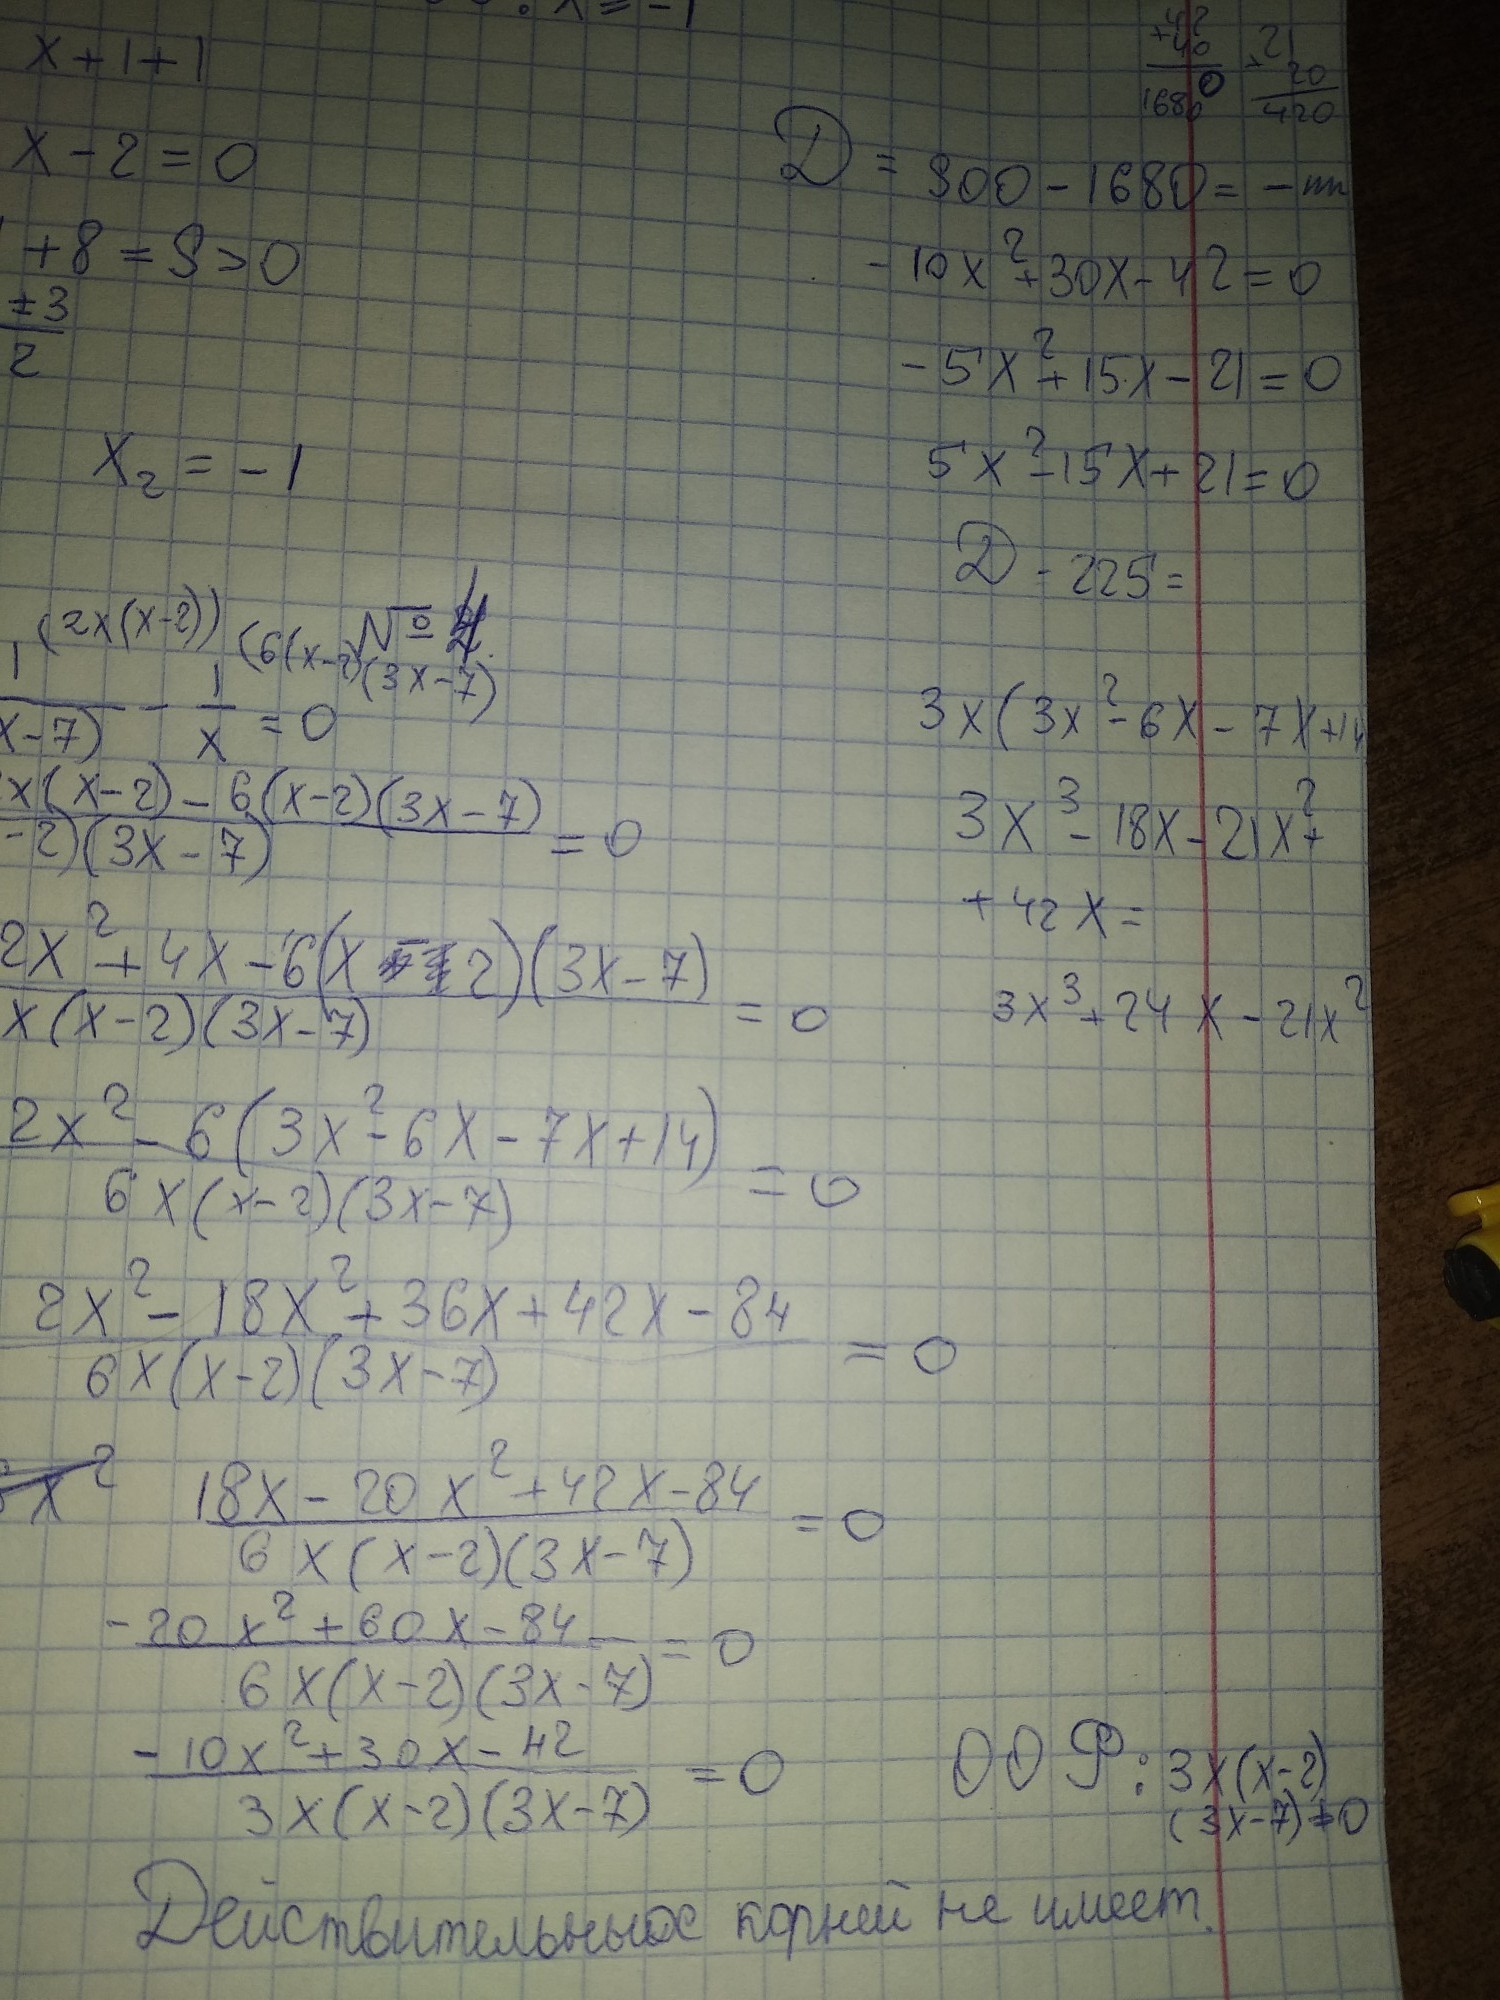 x = -1
x + 1 + 1
x - 2 = 0
+ 8 = 9 > 0
±3
2
x₂ = -1
№ 4
(2x(x-2)) (6(x-2)(3x-7)
1/(x-7) - 1/x = 0
x(x-2) - 6(x-2)(3x-7)
-2)(3x-7) = 0
2x² + 4x - 6(x - 2)(3x-7)
x(x-2)(3x-7) = 0
2x² - 6(3x² - 6x - 7x + 14)
6x(x-2)(3x-7) = 0
2x² - 18x² + 36x + 42x - 84
6x(x-2)(3x-7) = 0
x² 18x - 20x² + 42x - 84
6x(x-2)(3x-7) = 0
-20x² + 60x - 84
6x(x-2)(3x-7) = 0
-10x² + 30x - 42
3x(x-2)(3x-7) = 0
Действительных корней не имеет.
42
40
1680
21
20
420
D = 900 - 1680 = -
-10x² + 30x - 42 = 0
-5x² + 15x - 21 = 0
5x² - 15x + 21 = 0
D - 225 =
3x(3x² - 6x - 7x + 14
3x³ - 18x - 21x² +
+ 42x =
3x³ + 24x - 21x²
ООР: 3x(x-2)
(3x-7) ≠ 0